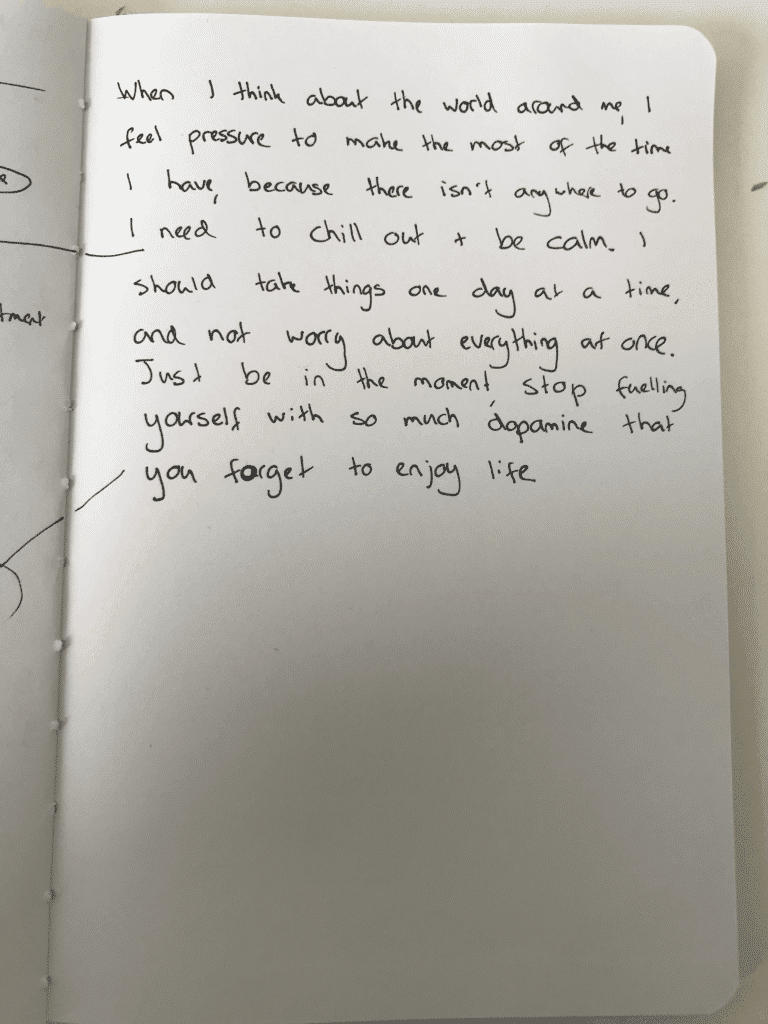 When I think about the world around me, I
feel pressure to make the most of the time
I have, because there isn't anywhere to go.
I need to chill out + be calm. I
should take things one day at a time,
and not worry about everything at once.
Just be in the moment, stop fuelling
yourself with so much dopamine that
you forget to enjoy life